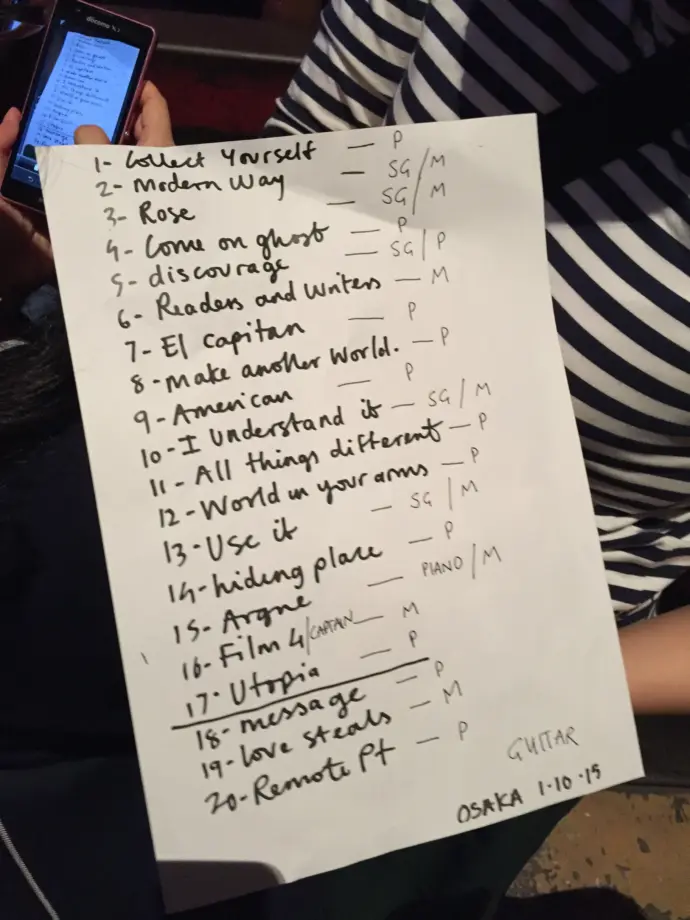 docomo
1- Collect Yourself — P
2- Modern Way — SG/M
3- Rose — SG/M
4- Come on ghost — P
5- discourage — SG/P
6- Readers and Writers — M
7- El Capitan — P
8- Make another World. — P
9- American — P
10- I Understand it — SG/M
11- All things different — P
12- World in your arms — P
13- Use it — SG/M
14- hiding place — P
15- Argue — PIANO/M
16- Film 4/CAPTAIN — M
17- Utopia — P
18- message — P
19- love steals — M
20- Remote Pt — P
GUITAR
OSAKA 1·10·15